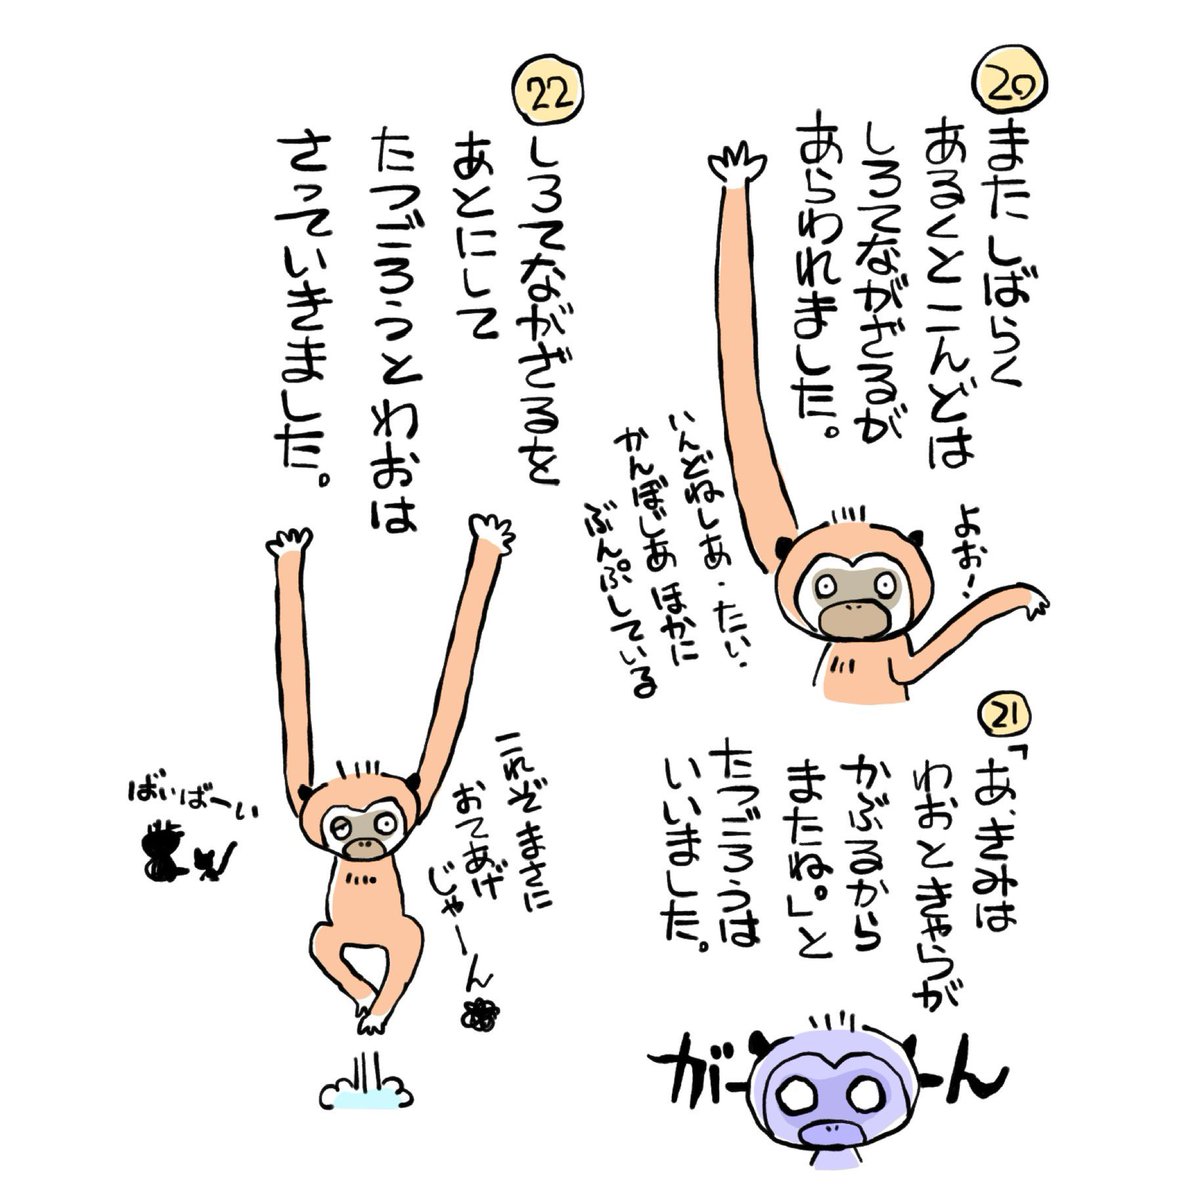 20
またしばらく
あるくとこんどは
しろてながざるが
あらわれました。
よお!
いんどねしあ・たい・
かんぼじあほかに
ぶんぷしている
21
「あ、きみは
わおときゃらが
かぶるから
またね。」と
たつごろうは
いいました。
がーん
22
しろてながざるを
あとにして
たつごろうとわおは
さっていきました。
これぞまさに
おてあげ
じゃーん
ばいばーい